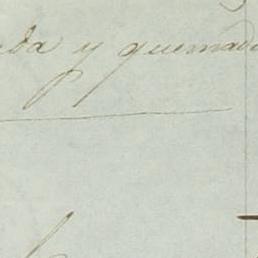 da y quemad